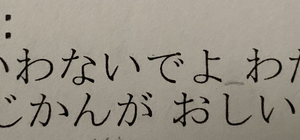 :
わないでよ わ
かんが おしい